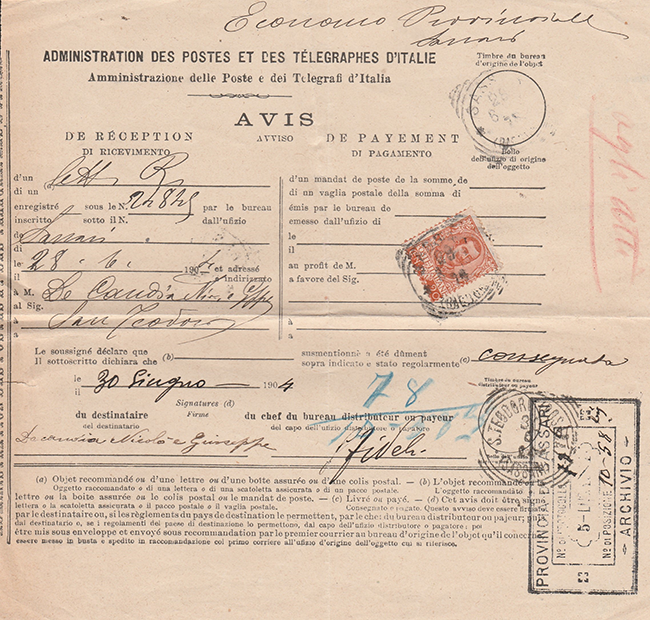 Economo Provinciale
Sassari
ADMINISTRATION DES POSTES ET DES TÉLEGRAPHES D'ITALIE
Amministrazione delle Poste e dei Telegrafi d'Italia
Timbre du bureau
d'origine de l'objet
AVIS
AVVISO
DE RÉCEPTION
DI RICEVIMENTO
DE PAYEMENT
DI PAGAMENTO
Bollo
dell'ufizio di origine
dell'oggetto
d'un
di un
enregistré sous le N. 24845 par le bureau
inscritto sotto il N. dall'ufizio
de Sassari
di
le 28.6. 190 et adressé
il e indirizzato
à M. De Candia
al Sig.
à San Teodoro
a
d'un mandat de poste de la somme de
di un vaglia postale della somma di
émis par le bureau de
emesso dall'ufizio di
le
il
au profit de M.
a favore del Sig.
à
a
Le soussigné déclare que
Il sottoscritto dichiara che (b)
susmentionné a été dûment
sopra indicato e stato regolarmente (c) consegnata
le 30 Giugno 1904
il
Timbre du bureau
distributeur ou payeur
78
Signatures (d)
Firme
du destinataire
del destinatario
du chef du bureau distributeur ou payeur
del capo dell'ufizio distributore o pagatore
Decandia Nicolò e Giuseppe
S. TEODORO
PROVINCIALE SASSARI
Nº DI PROTOCOLLO
5 LUG
Nº DI POSIZIONE 10-58
ARCHIVIO
(a) Objet recommandé ou d'une lettre ou d'une boite assurée ou d'une colis postal. — (b) L'objet recommandé
Oggetto raccomandato o di una lettera o di una scatoletta assicurata o di un pacco postale. L'oggetto raccomandato
lettre ou la boite assurée ou le colis postal ou le mandat de poste. — (c) Livré ou payé. — (d) Cet avis doit être signé
lettera o la scatoletta assicurata o il pacco postale o il vaglia postale. Consegnato o pagato. Questo avviso deve essere
par le destinataire ou, si les règlements du pays de destination le permettent, par le chef du bureau distributeur ou payeur; pui
dal destinatario o, se i regolamenti del paese di destinazione lo permettono, dal capo dell'ufizio distributore o pagatore; poi
être mis sous enveloppe et envoyé sous recommandation par le premier courrier au bureau d'origine de l'objet qu'il concerne
essere messo in busta e spedito in raccomandazione col primo corriere all'ufizio d'origine dell'oggetto cui si riferisce.